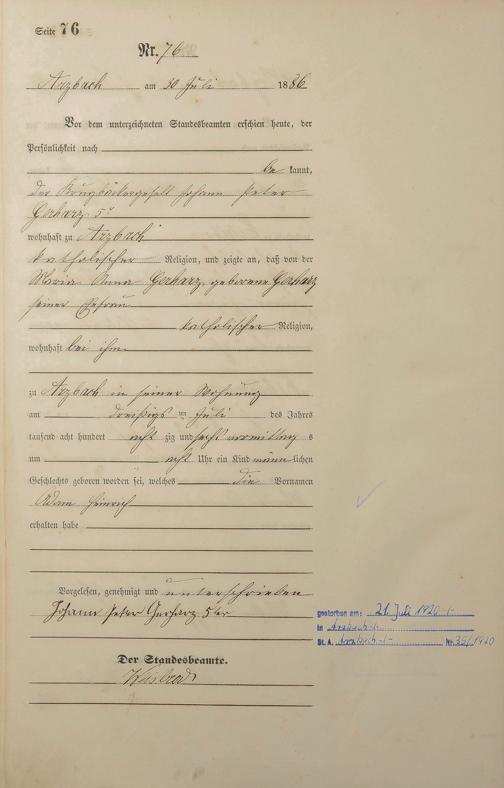 Seite 76
Nr. 76
Arzbach am 30 Juli 1886
Vor dem unterzeichneten Standesbeamten erschien heute, der
Persönlichkeit nach
be kannt,
der Krugbäckergesell Johann Peter
Gerharz 5r
wohnhaft zu Arzbach
katholischer Religion, und zeigte an, daß von der
Maria Anna Gerharz, geborene Gerharz
seiner Ehefrau
katholischer Religion,
wohnhaft bei ihm
zu Arzbach in seiner Wohnung
am dreißigsten Juli des Jahres
tausend acht hundert acht zig und sechs vormittag s
um acht Uhr ein Kind männ lichen
Geschlechts geboren worden sei, welches die Vornamen
Adam Heinrich
erhalten habe
Vorgelesen, genehmigt und unterschrieben
Johann Peter Gerharz 5ter
gestorben am: 21. Juli 1920
in Arzbach
St. A. Arzbach Nr. 35/1920
Der Standesbeamte.